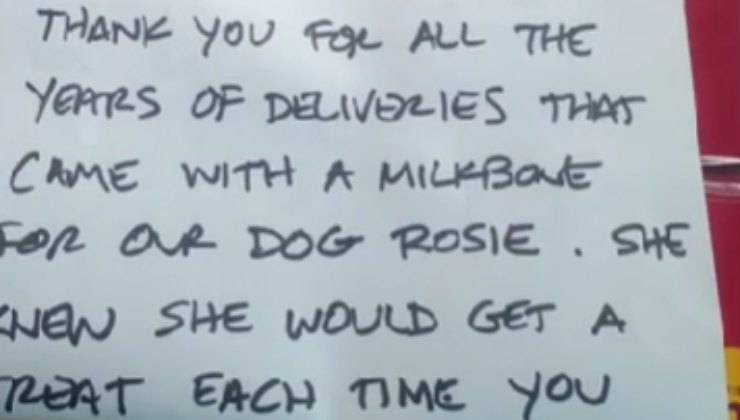 THANK YOU FOR ALL THE
YEARS OF DELIVERIES THAT
CAME WITH A MILKBONE
FOR OUR DOG ROSIE. SHE
KNEW SHE WOULD GET A
TREAT EACH TIME YOU